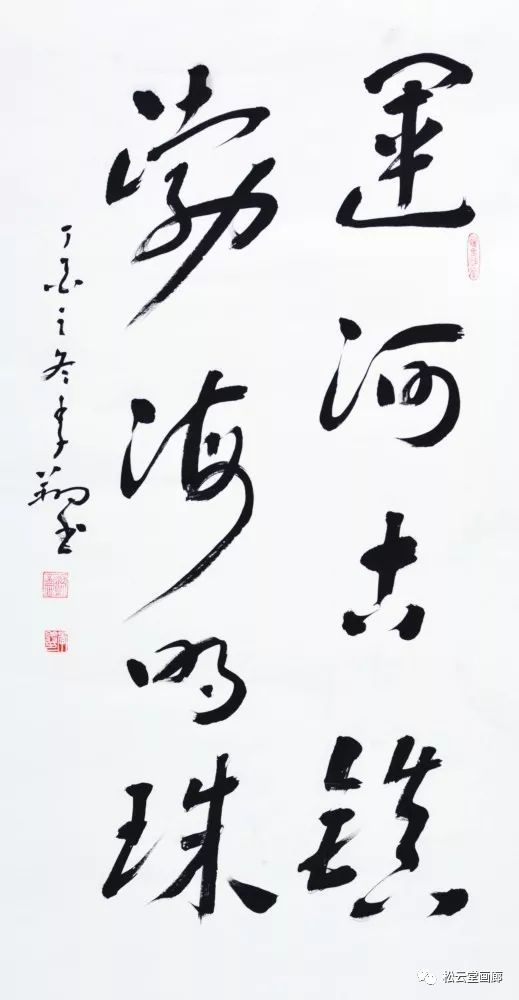 運河古鎮
渤海明珠
丁酉之冬李翔书
松云堂画廊